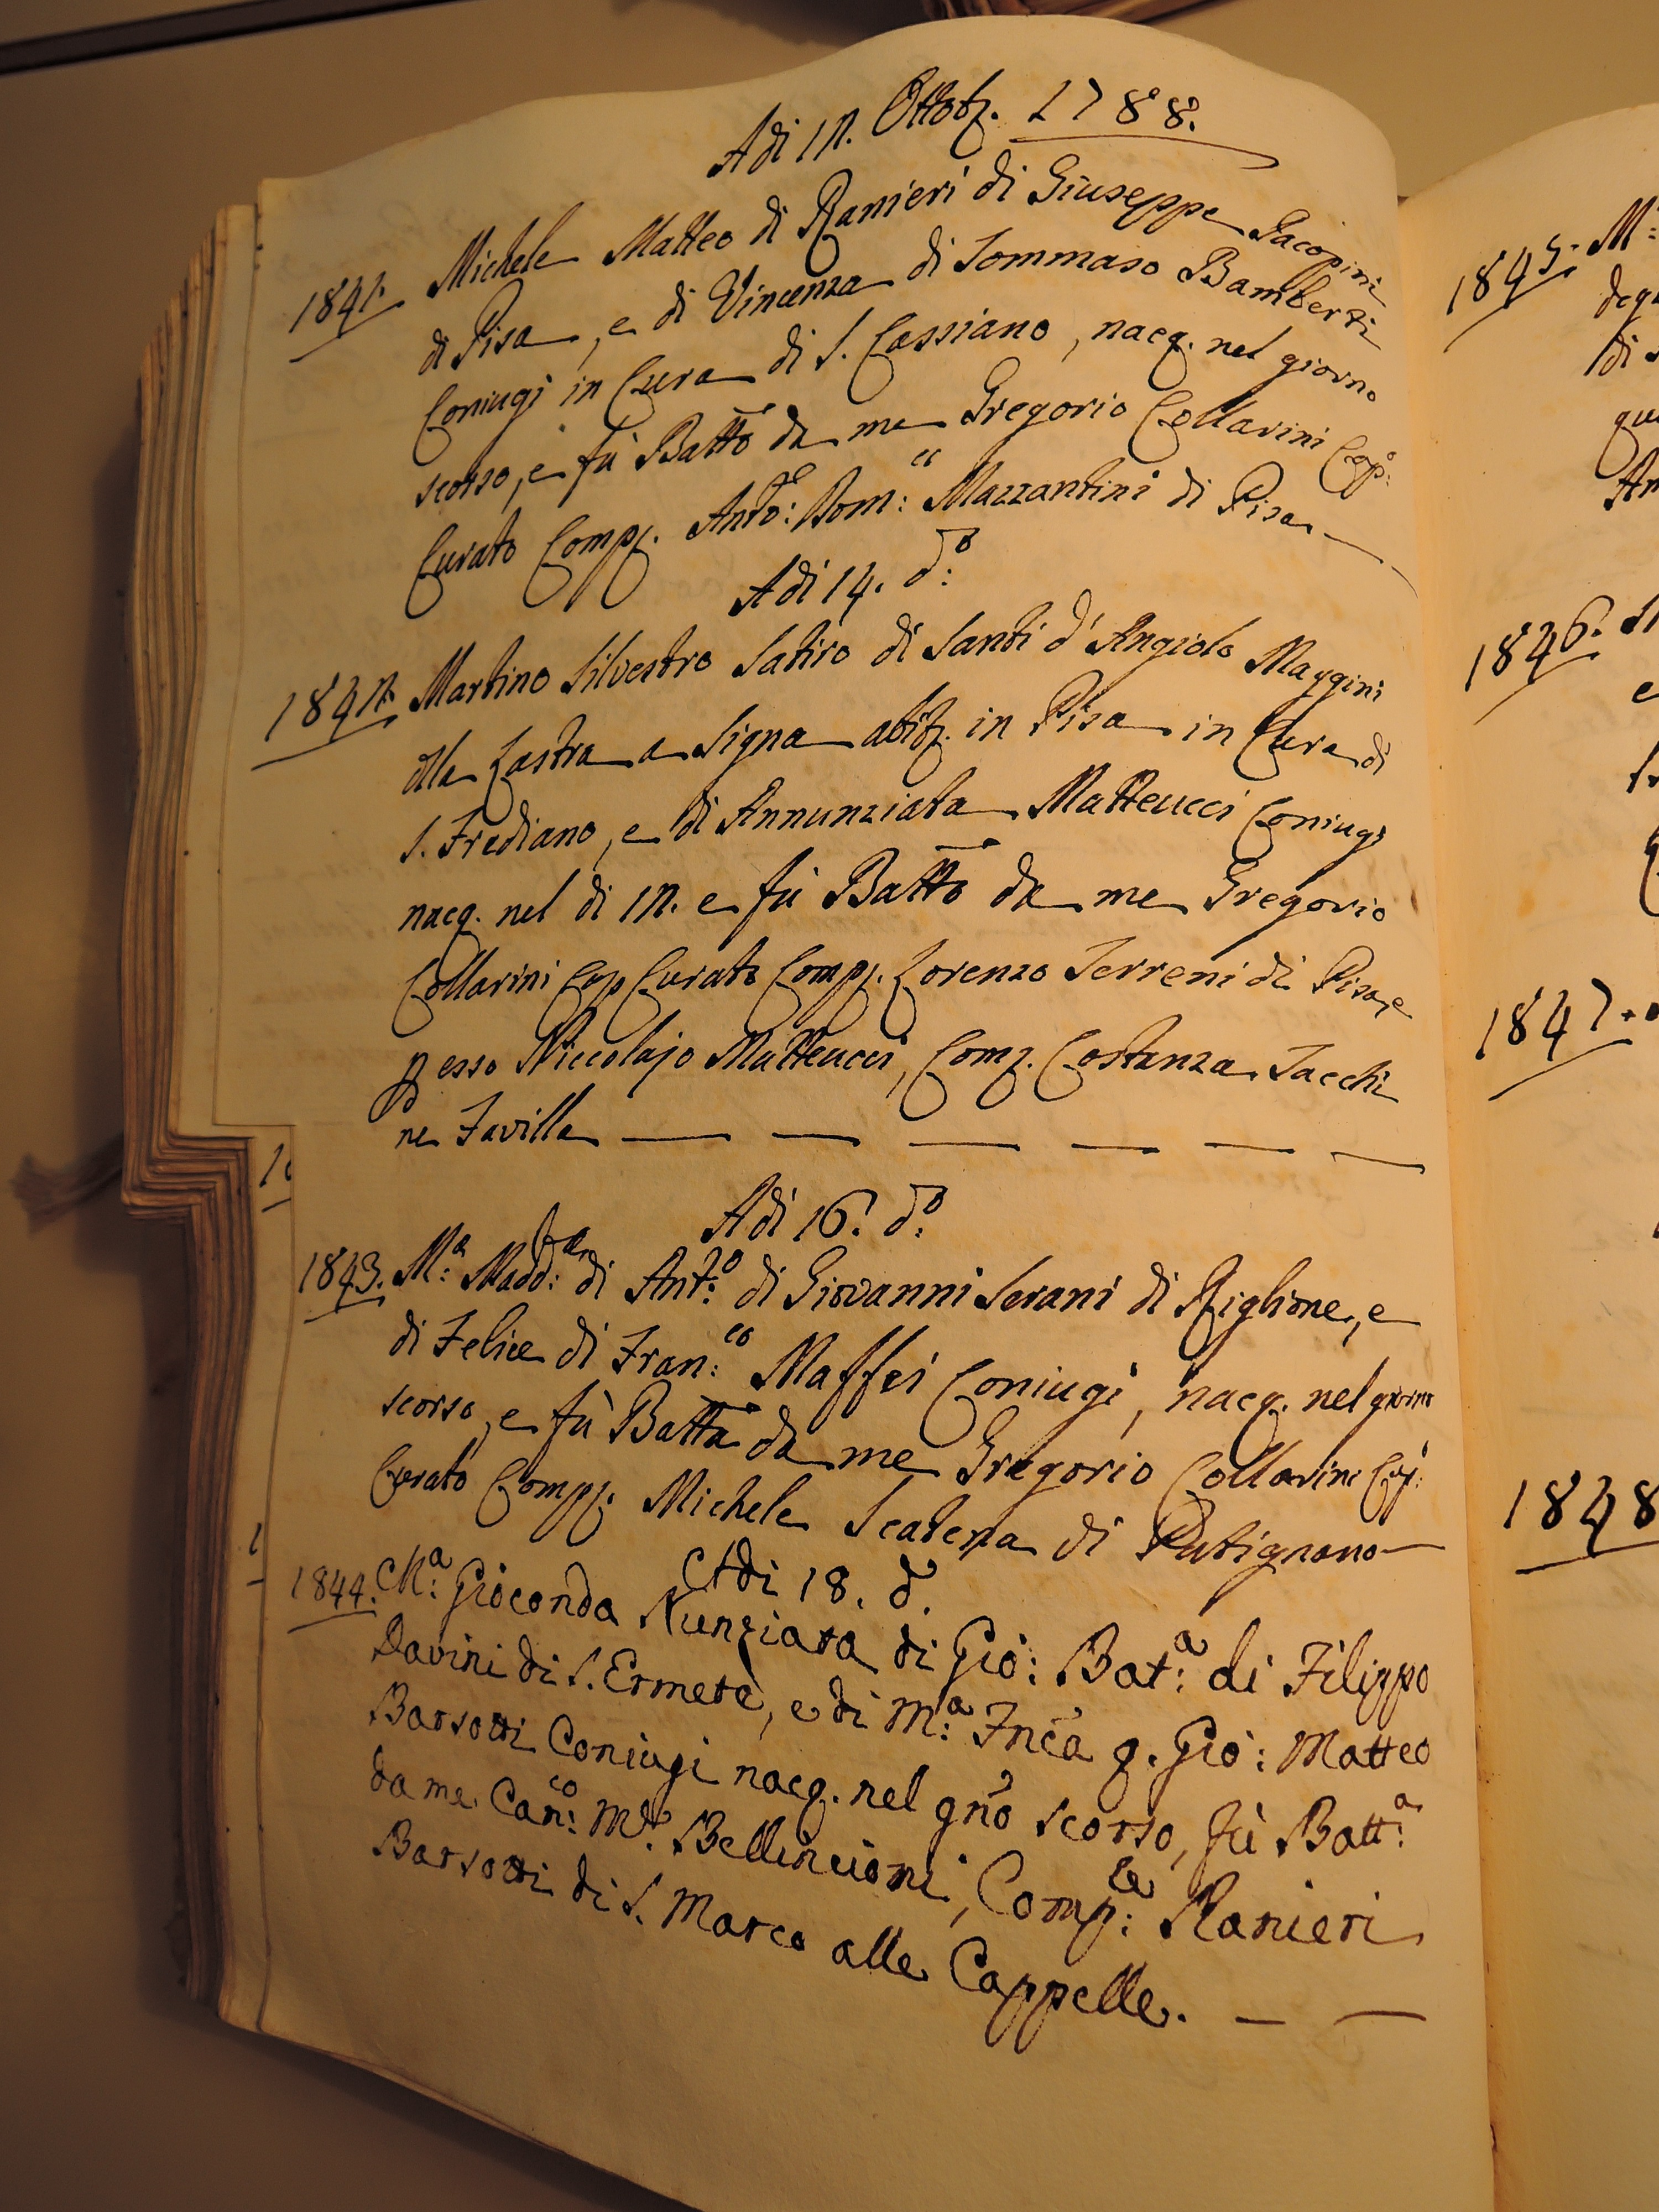 Adi 12. Ottob. 1788.
1841. Michele Matteo di Ranieri di Giuseppe Jacopini
di Pisa, e di Vincenza di Tommaso Bamberzi
Coniugi in Cura di S. Cassiano, nacq. nel giorno
scorso, e fù Batto da me Gregorio Collavini Cap:
Curato Comp. Anto: Dom:co Mazzantini di Pisa
Adi 14. do:
1842. Martino Silvestro Satiro di Santi d'Angiolo Maggini
dlla Lastra a Signa abit. in Pisa in Cura di
S. Frediano, e di Annunziata Matteucci Coniugi
nacq. nel di 12. e fù Batto da me Gregorio
Collavini Cap Curato Comp. Lorenzo Terreni di Pisa, e
p esso Niccolajo Matteucci, Com. Costanza Tacchi
ne Favilla — — — — — —
Adi 16. do:
1843. Ma: Madd:na di Ant:o di Giovanni Serani di Riglione, e
di Felice di Fran:co Maffei Coniugi, nacq. nel giorno
scorso, e fù Batta da me Gregorio Collavini Cap:
Curato Comp: Michele Scatena di Putignano
Adi 18. do.
1844. Ma: Gioconda Nunziata di Gio: Bat:a di Filippo
Davini di S. Ermete, e di Ma: Fnca q. Gio: Matteo
Barsotti Coniugi nacq. nel gno scorso, fù Batt:a
da me Can:co Me. Bellincioni, Comp:re Ranieri
Barsotti di S. Marco alle Cappelle. — —
1845. Ma:
di
1846.
e
1847.
1848